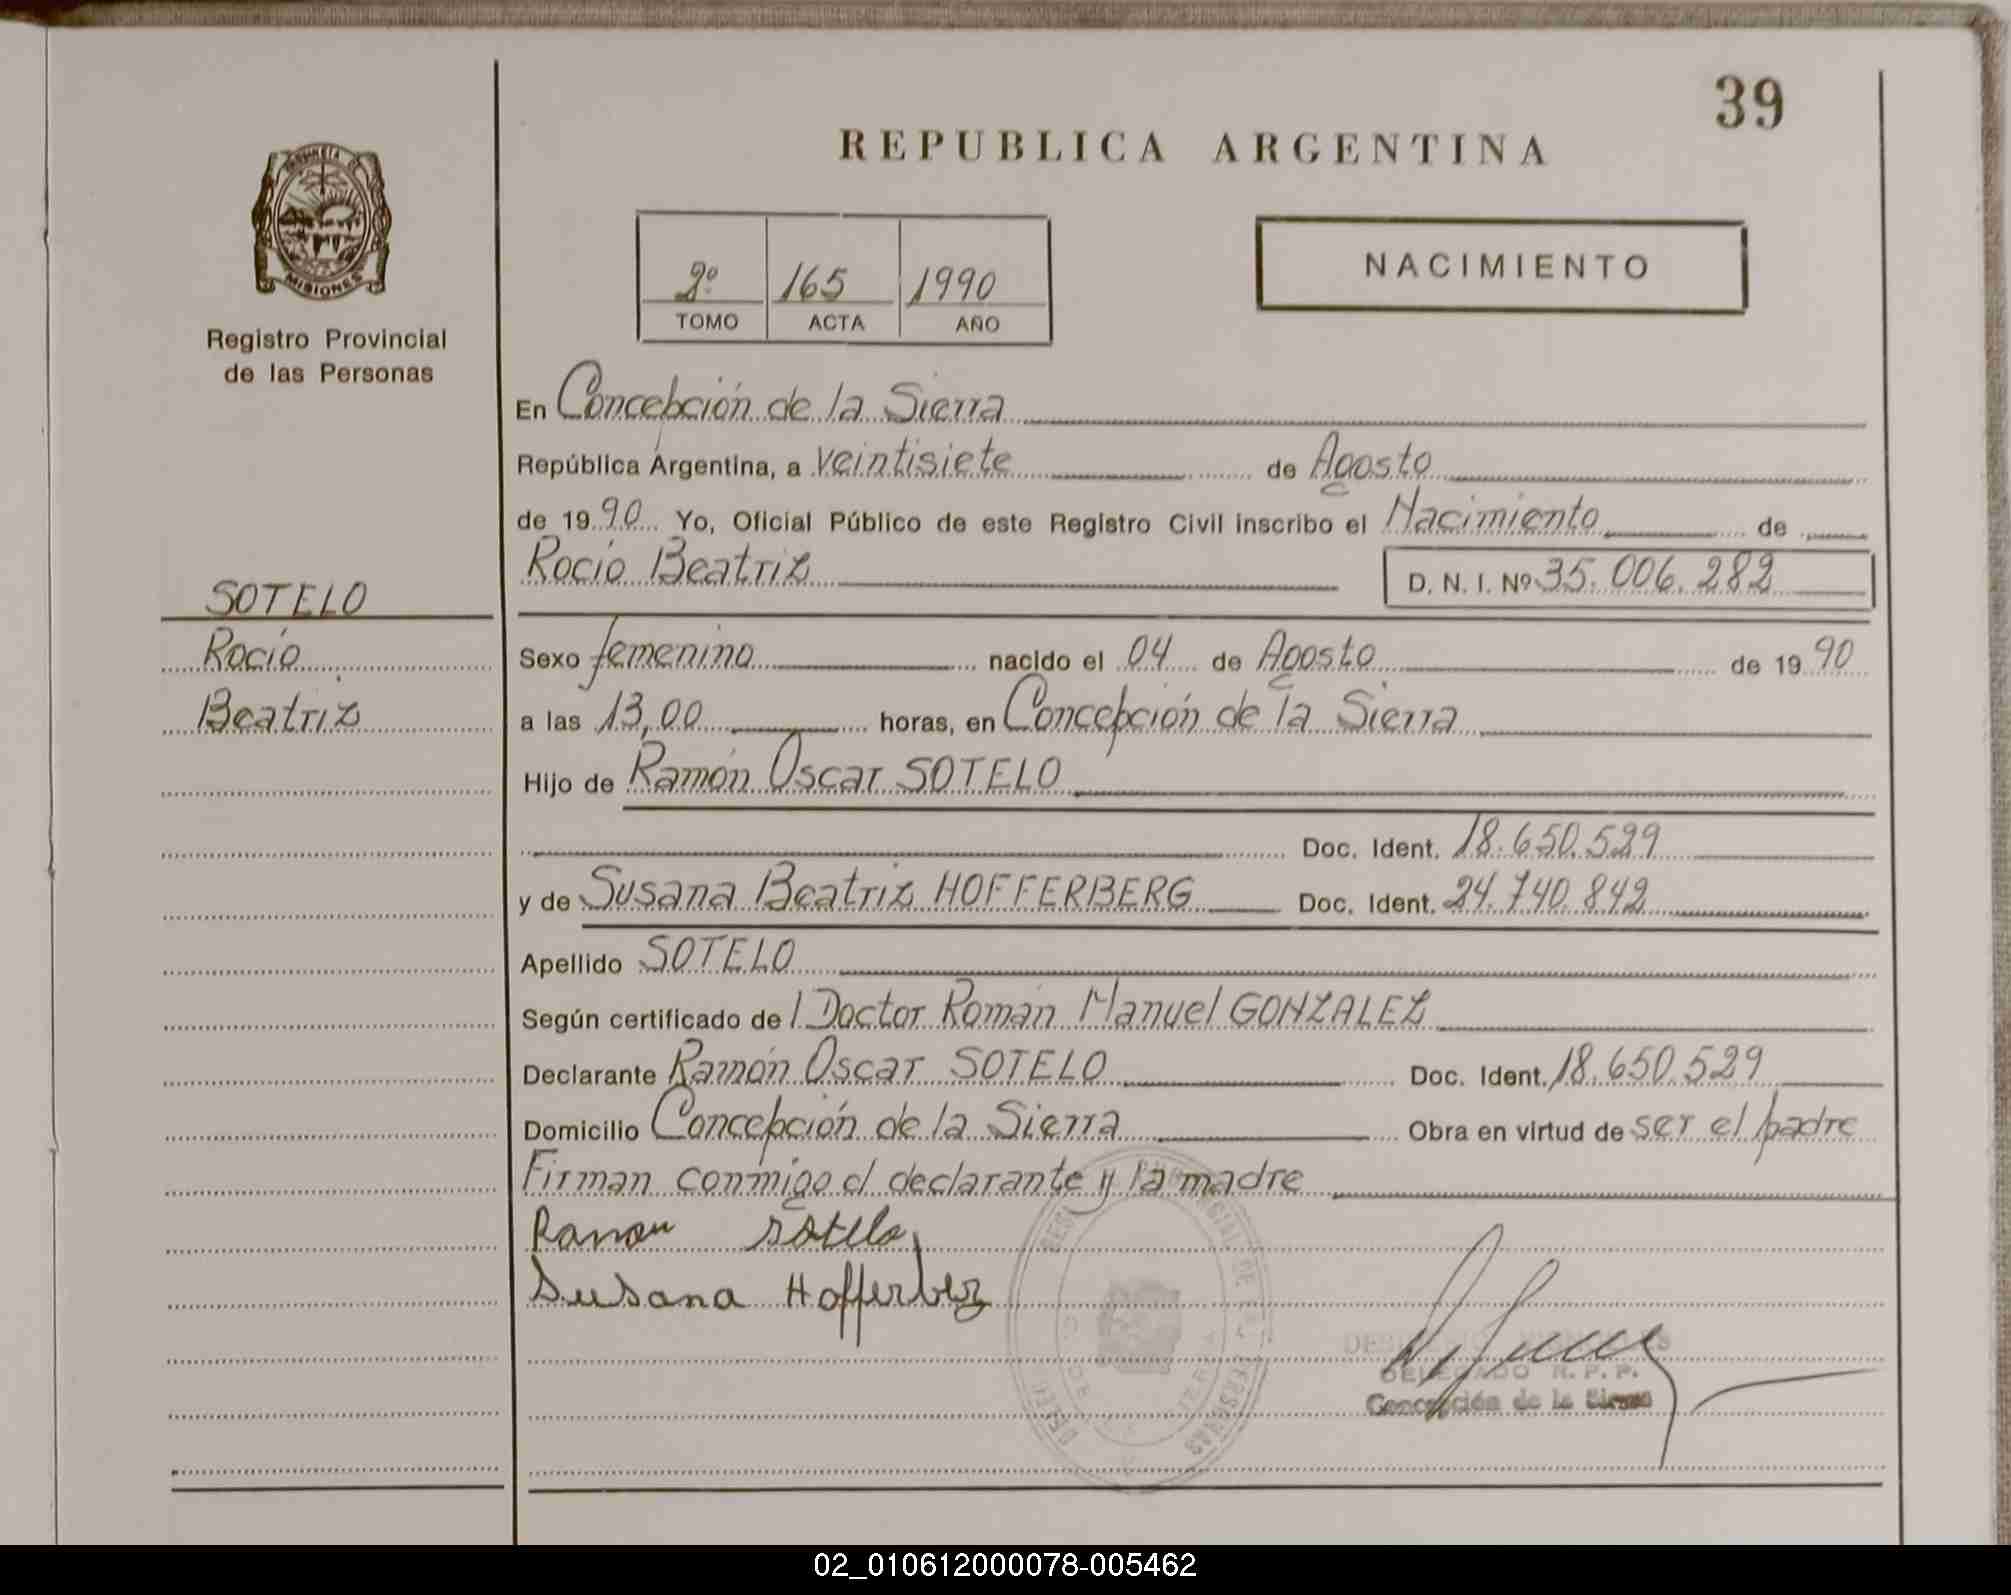 39
REPUBLICA ARGENTINA
PROVINCIA DE
MISIONES
Registro Provincial
de las Personas
2º 165 1990
TOMO ACTA AÑO
NACIMIENTO
En Concepción de la Sierra
República Argentina, a veintisiete de Agosto
de 1990 Yo, Oficial Público de este Registro Civil inscribo el Nacimiento de
Rocío Beatriz D. N. I. Nº 35.006.282
SOTELO
Rocío
Beatriz
Sexo femenino nacido el 04 de Agosto de 1990
a las 13,00 horas, en Concepción de la Sierra
Hijo de Ramón Oscar SOTELO
Doc. Ident. 18.650.529
y de Susana Beatriz HOFFERBERG Doc. Ident. 24.740.842
Apellido SOTELO
Según certificado de l Doctor Román Manuel GONZALEZ
Declarante Ramón Oscar SOTELO Doc. Ident. 18.650.529
Domicilio Concepción de la Sierra Obra en virtud de ser el padre
Firman conmigo el declarante y la madre
Ramon Sotelo
Susana Hofferberg
DELEGADO R. P. P.
Concepción de la Sierra
02_010612000078-005462